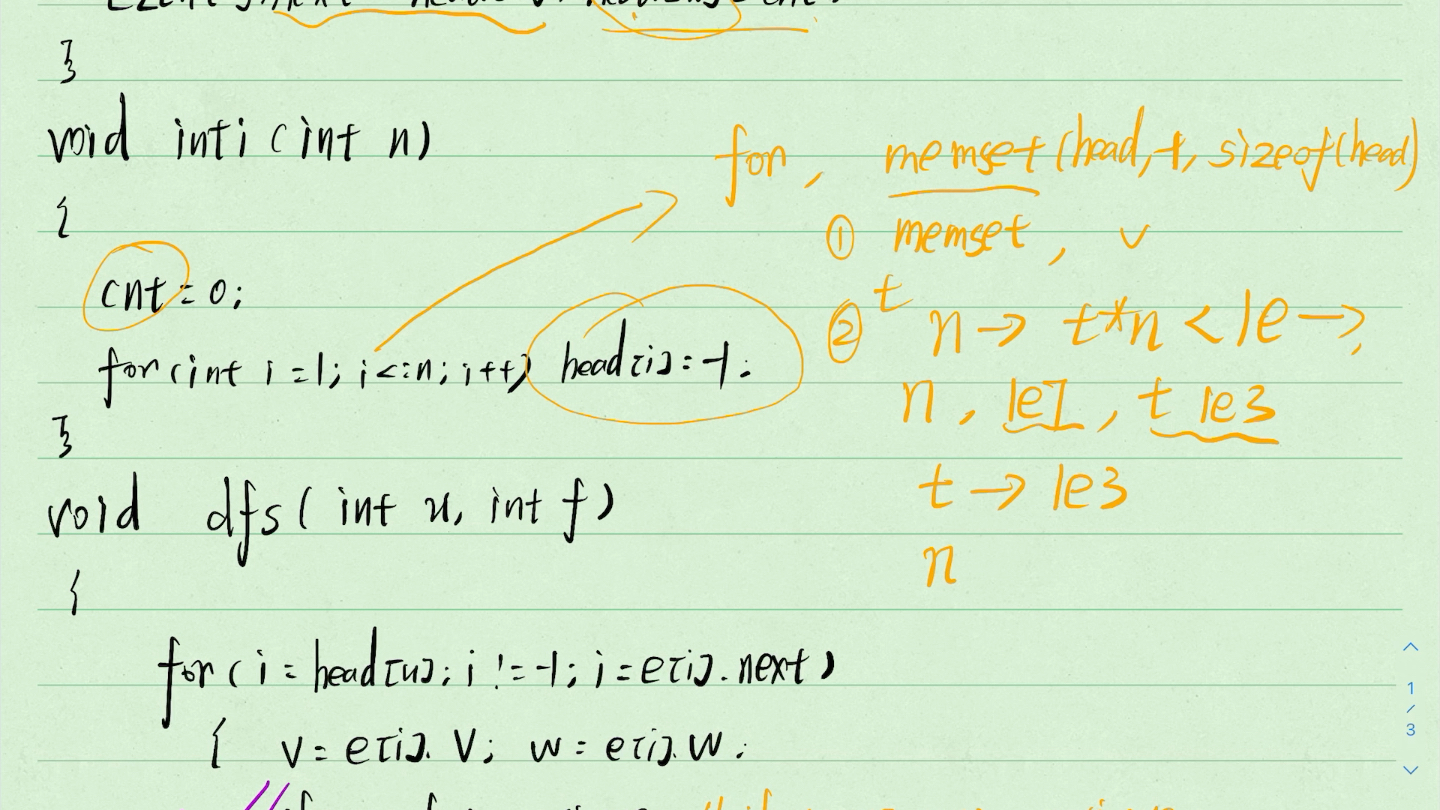 }
void inti (int n)
{
cnt = 0;
for(int i=1; i<=n; i++) head[i]=-1;
}
void dfs( int u, int f)
{
for( i = head[u]; i != -1; i = e[i].next)
{ v = e[i].v; w = e[i].w;
for, memset(head,-1, sizeof(head)
① memset, v
② t n → t*n < 1e →
n, 1e7, t 1e3
t → 1e3
n
1
/
3